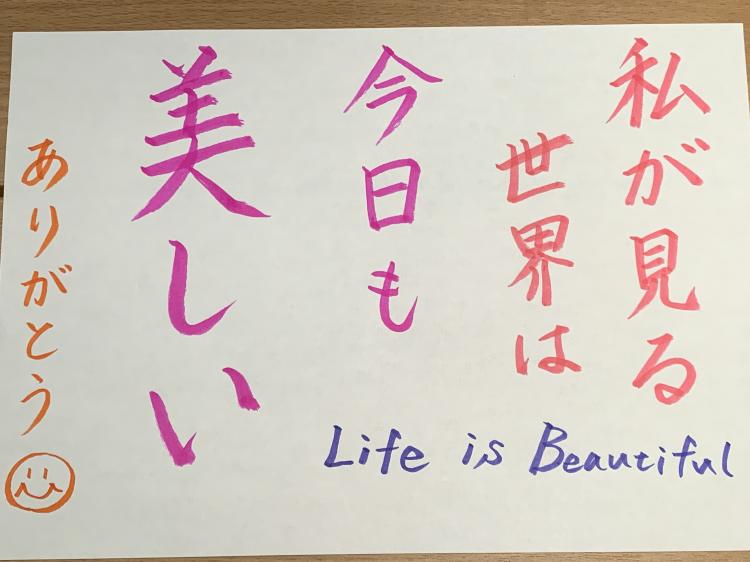 私が見る
世界は
今日も
美しい
ありがとう
Life is Beautiful